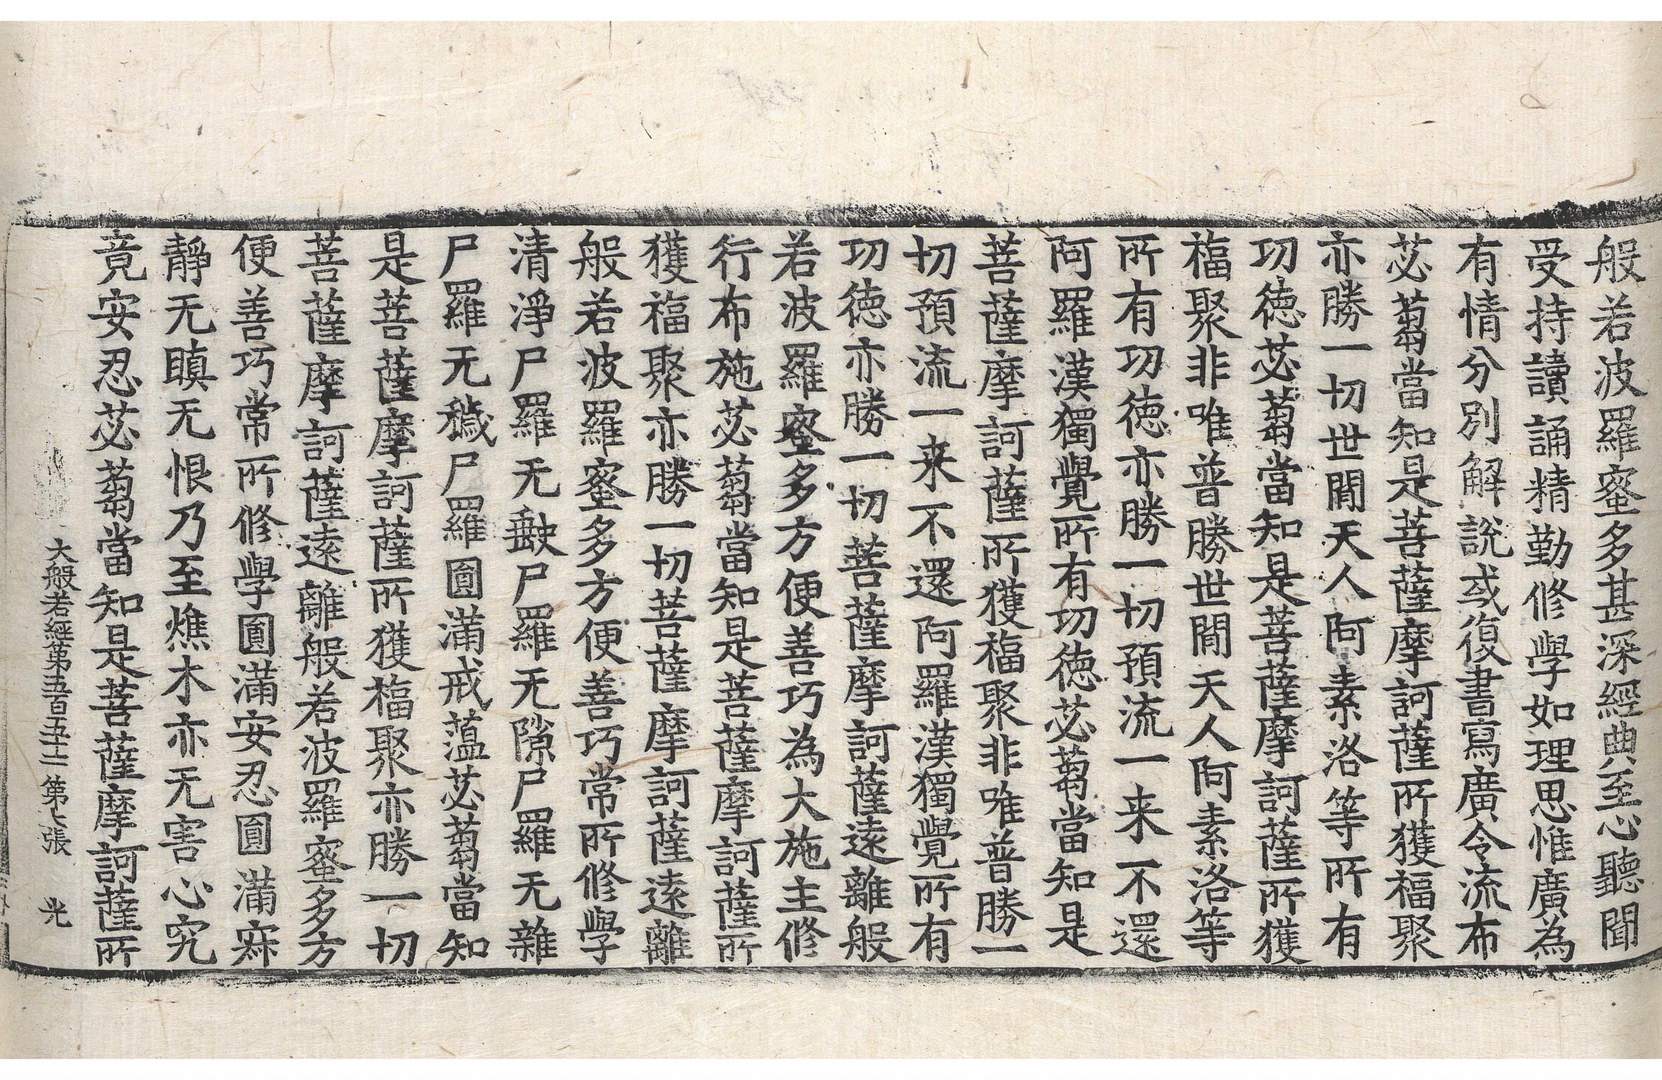 般若波羅蜜多甚深經典至心聽聞
受持讀誦精勤修學如理思惟廣為
有情分別解說或復書寫廣令流布
苾蒭當知是菩薩摩訶薩所獲福聚
亦勝一切世閒天人阿素洛等所有
功徳苾蒭當知是菩薩摩訶薩所獲
福聚非唯普勝世閒天人阿素洛等
所有功徳亦勝一切預流一来不還
阿羅漢獨覺所有功徳苾蒭當知是
菩薩摩訶薩所獲福聚非唯普勝一
切預流一来不還阿羅漢獨覺所有
功徳亦勝一切菩薩摩訶薩遠離般
若波羅蜜多方便善巧為大施主修
行布施苾蒭當知是菩薩摩訶薩所
獲福聚亦勝一切菩薩摩訶薩遠離
般若波羅蜜多方便善巧常所修學
清淨尸羅无㪇尸羅无隙尸羅无雜
尸羅无穢尸羅圎滿戒蘊苾蒭當知
是菩薩摩訶薩所獲福聚亦勝一切
菩薩摩訶薩遠離般若波羅蜜多方
便善巧常所修學圎滿安忍圎滿寂
靜无瞋无恨乃至燋木亦无害心究
竟安忍苾蒭當知是菩薩摩訶薩所
大般若經第五百五十二 第七張 光